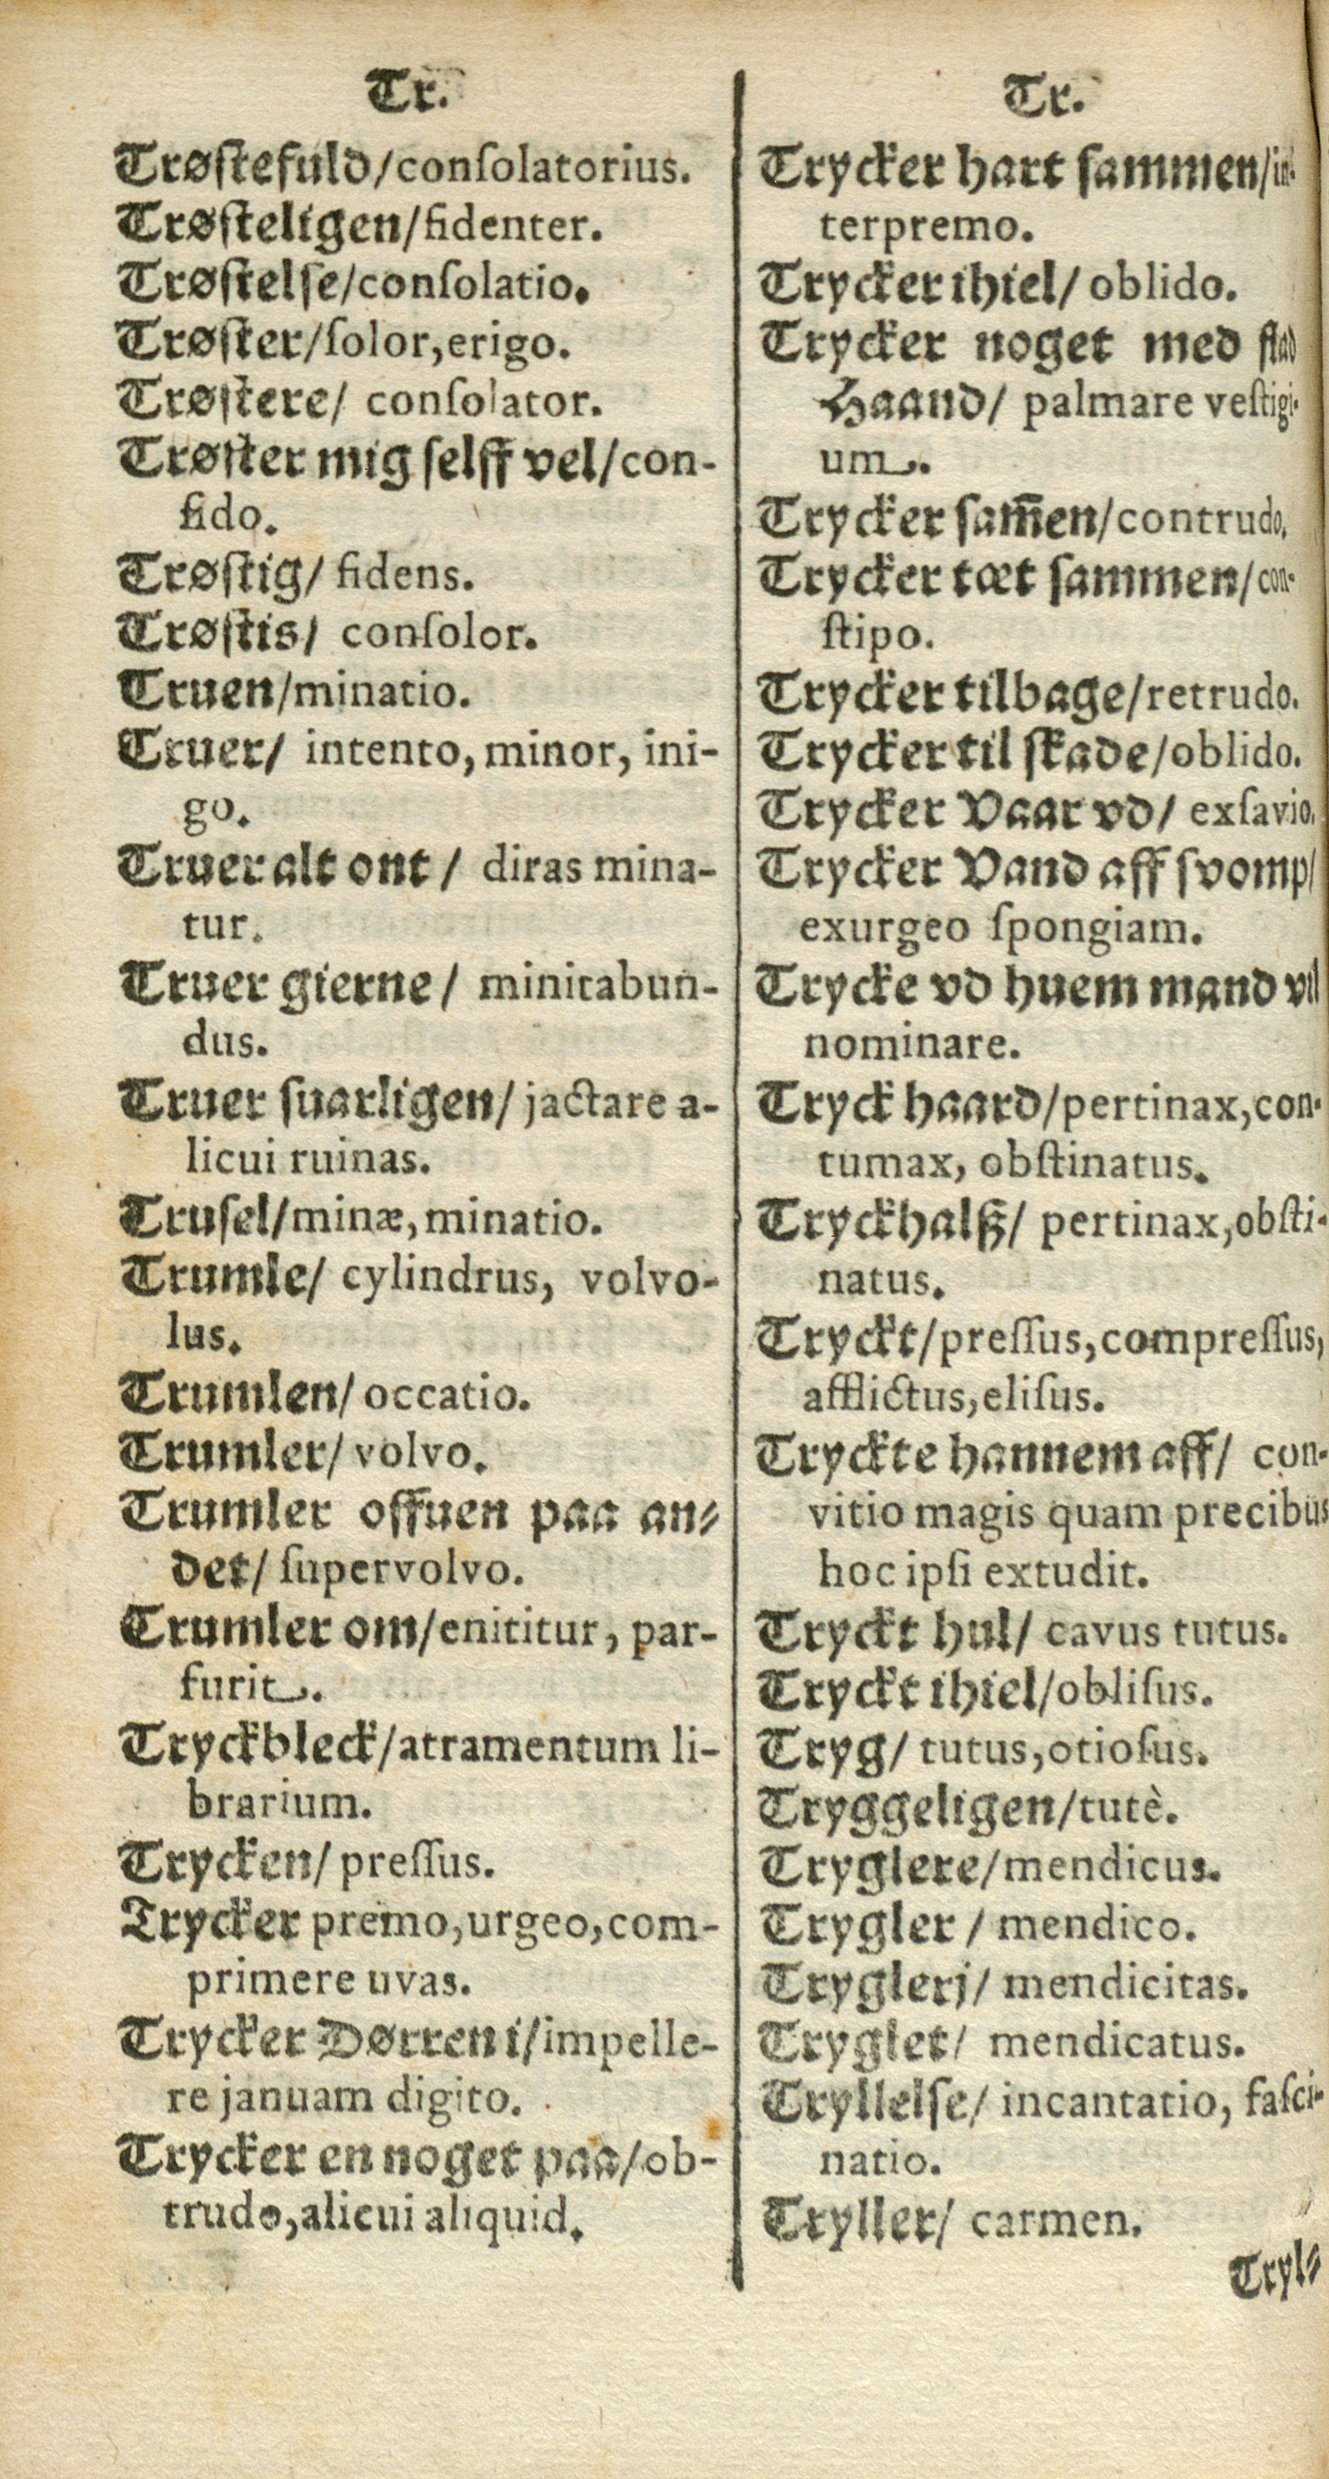 Tr.
Trøſtefuld/conſolatorius.
Trøſteligen/fidenter.
Trøſtelſe/conſolatio.
Trøſter/ſolor,erigo.
Trøſtere/ conſolator.
Trøſter mig ſelff vel/con-
fido.
Trøſtig/ fidens.
Trøſtis/ conſolor.
Truen/minatio.
Truer/ intento, minor, ini-
go.
Truer alt ont / diras mina-
tur.
Truer gierne / minitabun-
dus.
Truer ſuarligen/ jactare a-
licui ruinas.
Truſel/minæ, minatio.
Trumle/ cylindrus, volvo-
lus.
Trumlen/ occatio.
Trumler/ volvo.
Trumler offuen paa an-
det/ ſupervolvo.
Trumler om/enititur, par-
furit.
Tryckbleck/atramentum li-
brarium.
Trycken/ preſſus.
Trycker premo,urgeo,com-
primere uvas.
Trycker Dørren i/impelle-
re januam digito.
Trycker en noget paa/ob-
trudo,alicui aliquid.
Tr.
Trycker hart ſammen/in-
terpremo.
Trycker ihiel/ oblido.
Trycker noget med flad
Haand/ palmare veſtigi-
um.
Trycker sam̅en/contrudo.
Trycker tæt ſammen/con-
ſtipo.
Trycker tilbage/retrudo.
Trycker til ſkade/oblido.
Trycker Vaar vd/ exſavio.
Trycker Vand aff ſvomp/
exurgeo ſpongiam.
Trycke vd huem mand vil
nominare.
Tryck haard/pertinax,con-
tumax, obſtinatus.
Tryckhalß/ pertinax,obſti-
natus.
Tryckt/preſſus,compreſſus,
afflictus,eliſus.
Tryckte hannem aff/ con-
vitio magis quam precibus
hoc ipſi extudit.
Tryckt hul/ cavus tutus.
Tryckt ihiel/obliſus.
Tryg/ tutus,otioſus.
Tryggeligen/tutè.
Tryglere/mendicus.
Trygler / mendico.
Tryglerj/ mendicitas.
Tryglet/ mendicatus.
Tryllelſe/ incantatio, faſci-
natio.
Tryller/ carmen.
Tryl-